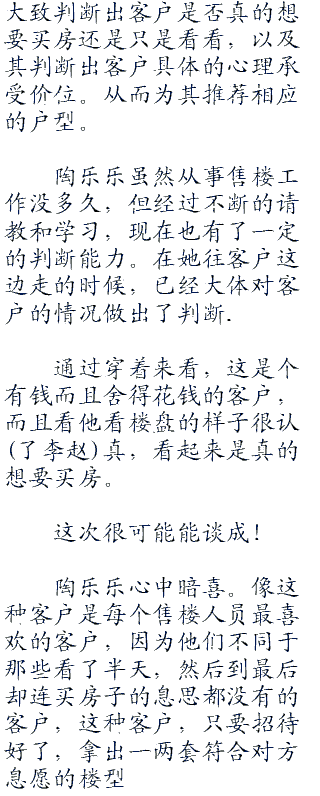 大致判断出客户是否真的想
要买房还是只是看看，以及
其判断出客户具体的心理承
受价位。从而为其推荐相应
的户型。
陶乐乐虽然从事售楼工
作没多久，但经过不断的请
教和学习，现在也有了一定
的判断能力。在她往客户这
边走的时候，已经大体对客
户的情况做出了判断.
通过穿着来看，这是个
有钱而且舍得花钱的客户，
而且看他看楼盘的样子很认
(了李赵)真，看起来是真的
想要买房。
这次很可能能谈成！
陶乐乐心中暗喜。像这
种客户是每个售楼人员最喜
欢的客户，因为他们不同于
那些看了半天，然后到最后
却连买房子的息思都没有的
客户，这种客户，只要招待
好了，拿出一两套符合对方
息愿的楼型